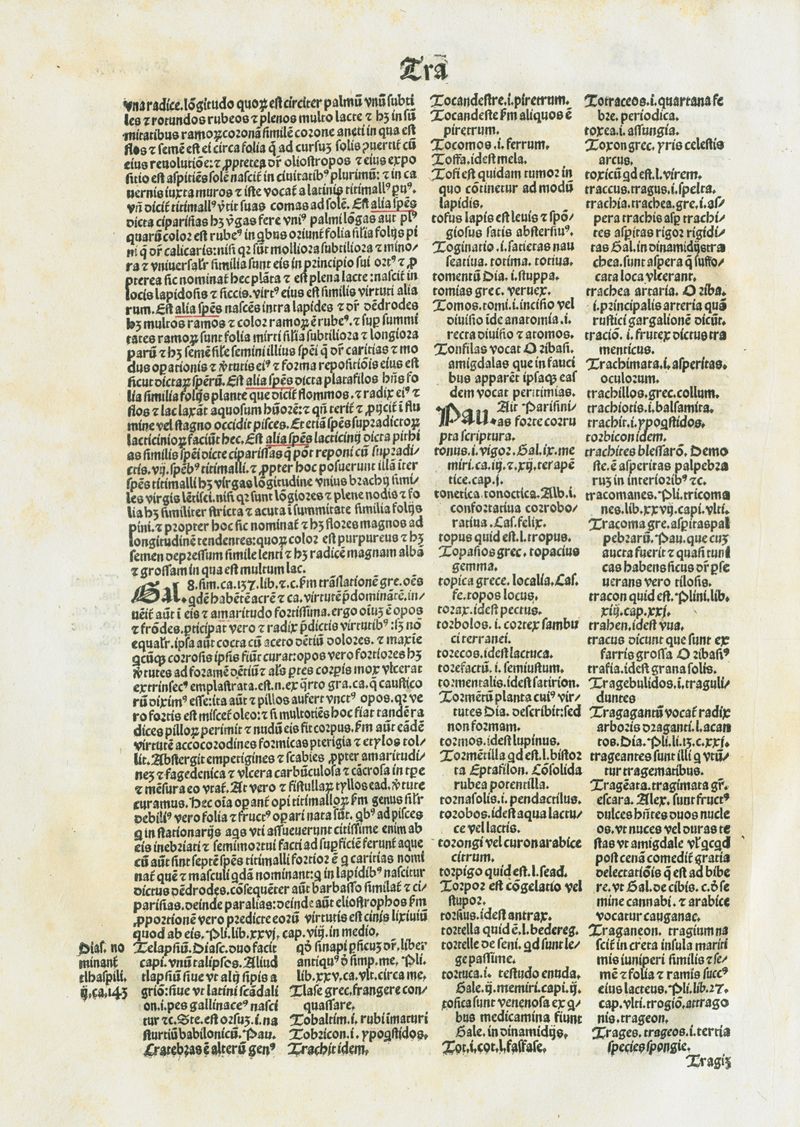 Trā
vna radice.lōgitudo quoꝝ est circiter palmū vnū subti
les ⁊ rotundos rubeos ⁊ plenos multo lacte ⁊ hꝫ in sū
mitatibus ramoꝝ coronā similē corone aneti in qua est
flos ⁊ semē est ei circa folia q̄ ad cursuꝫ solis ꝓuertit cū
eius reuolutiōe: ⁊ ꝓpterea dr̄ oliostropos ⁊ eius expo
sitio est aspitiēs solē nascit in ciuitatibꝰ plurimū: ⁊ in ca
uernis iuxta muros ⁊ iste vocat̄ a latinis titimallꝰ ꝑuꝰ.
vn̄ dicit̄ titimallꝰ v̄tit suas comas ad solē. Est alia sp̄es
dicta ciparissias hꝫ v̄gas fere vniꝰ palmi lōgas aut plꝰ
quarū color est rubeꝰ in qbus oriunt̄ folia similia folijs pi
ni q̄ dr̄ calicaris: nisi qꝛ sūt molliora subtiliora ⁊ mino/
ra ⁊ vniuersalr̄ similia sunt eis in principio sui ortꝰ ⁊ ꝓ
pterea sic nominat̄ hec plāta ⁊ est plena lacte: nascit̄ in
locis lapidosis ⁊ siccis. virtꝰ eius est similis virtuti alia
rum. Est alia sp̄es nascēs intra lapides ⁊ dr̄ dēdrodes
hꝫ multos ramos ⁊ color ramoꝝ ē rubeꝰ. ⁊ sup summi
tates ramoꝝ sunt folia mirti sil̄ia subtiliora ⁊ longiora
parū ⁊ hꝫ semē sil̄e semini illius sp̄ei q̄ dr̄ caritas ⁊ mo
dus oꝑationis ⁊ v̄tutis eiꝰ ⁊ forma repositiōis eius est
sicut dictaꝝ sp̄erū. Est alia sp̄es dicta platafilos hn̄s fo
lia similia folijs plante que dicit̄ flommos. ⁊ radix eiꝰ ⁊
flos ⁊ lac laxāt aquosum hūorē: ⁊ qn̄ terit̄ ⁊ ꝓijcit̄ ī flu
mine vel stagno occidit pisces. Et etiā sp̄es supradictoꝝ
lacticinioꝝ faciūt hec. Est alia sp̄es lacticinij dicta pithi
as similis sp̄ei dicte ciparissas q̄ pōt reponi cū supradi/
ctis.vij.sp̄ebꝰ titimalli. ⁊ ꝓpter hoc posuerunt illā iter
sp̄es titimalli hꝫ virgas lōgitudine vnius brachij simi/
les virgis lētisci. nisi qꝛ sunt lōgiores ⁊ plene nodis ⁊ fo
lia hꝫ similiter stricta ⁊ acuta ī summitate similia folijs
pini. ⁊ propter hoc sic nominat̄ ⁊ hꝫ flores magnos ad
longitudinē tendentes: quoꝝ color est purpureus ⁊ hꝫ
semen depressum simile lenti ⁊ hꝫ radicē magnam albā
⁊ grossam in qua est multum lac.
Gal. 8. sim. ca. 137. lib. ⁊. c. ẜm trāslationē gre. oēs
qdē habēt ē acrē ⁊ ca. virtutē p̄dominātē. in/
uēit̄ aūt ī eis ⁊ amaritudo fortissima. ergo oiuꝫ ē opos
⁊ frōdes. ꝑticipat vero ⁊ radix p̄dictis virtutibꝰ: sꝫ nō
equalr̄. ipsa aūt cocta cū aceto dētiū dolores. ⁊ maxie
qcūqꝫ corrosis ipsis fiūt curat: opos vero fortiores hꝫ
v̄tutes ad foramē dētiū ⁊ als ꝑtes corpis mox vlcerat
extrinsecꝰ emplastrata. est. n. ex q̄rto gra. ca. q̄ caustico
rū diximꝰ esse: ita aūt ⁊ pillos aufert vnctꝰ opos. qꝛ ve
ro fortis est miscet̄ oleo: ⁊ si multotiēs hoc fiat tandē ra
dices pilloꝝ perimit ⁊ nudū eis fit corpus. ẜm aūt eādē
virtutē accocorodines formicas pterigia ⁊ etylos tol/
lit. Abstergit empetigines ⁊ scabies ꝓpter amaritudi/
neꝫ ⁊ fagedenica ⁊ vlcera carbūculosa ⁊ cācrosa in tꝑe
⁊ mēsura eo vtat̄. At vero ⁊ fistullaꝝ tyllos ead. v̄tute
curamus. Hec oīa oꝑant̄ opi titimalloꝝ ẜm genus sil̄r
debiliꝰ vero folia ⁊ fructꝰ oꝑari nata sūt. qbꝰ ad pisces
q in stationarijs aqs vti assueuerunt citissime enim ab
eis inebriati ⁊ semimortui facti ad supficiē ferunt̄ aque
cū aūt sint septē sp̄es titimalli fortior ē q̄ caritas nomi
nat̄ quē ⁊ masculi gdā nominant: q in lapidibꝰ nascitur
dictus dēdrodes. cōsequēter aūt barbasso similat̄ ⁊ ci/
parisias. deinde paralias: deinde aūt eliostrophos ẜm
ꝓportionē vero predicte eorū virtutis est cinis lixiuiū
quod ab eis. Pli. lib. xxvj. cap. viij. in medio.
Dias. no
minant̄
elhaspili.
ij. ca. 143
Telapsiū. Diasc. duo facit
capi. vnū talipsos. Aliud
tlapsiū siue vt alij sipis a
griō: siue vt latini scādali
on. i. pes gallinaceꝰ nasci
tur ⁊c. Ste. est orsuꝫ. i. na
sturtiū babilonicū. Pau.
Cratebras ē alterū genꝰ
qō sinapi ꝑsicuꝫ dr̄. liber
antiqꝰ ō simp. me. Pli.
lib. xxv. ca. vlt. circa me.
Tlase grec. frangere con/
quassare.
Tobaltim. i. rubi īmaturi
Tobricon. i. ypoqstidos.
Trachit idem.
Tocandestre. i. piretrum.
Tocandeste ẜm aliquos ē
piretrum.
Tocomos. i. ferrum.
Toffa. idest mela.
Tofi est quidam tumor in
quo cōtinetur ad modū
lapidis.
tofus lapis est leuis ⁊ spō/
giosus satis abstersiuꝰ.
Toginatio. i. satietas nau
seatiua. totima. totiua.
tomentū Dia. i. stuppa.
tomias grec. veruex.
Tomos. tomi. i. incisio vel
diuisio īde anatomia. i.
recta diuisio ⁊ atomos.
Tonsilas vocat Oribasi.
amigdalas que in fauci
bus apparēt ipsaqꝫ eas
dem vocat peritimias.
Pau. Ait Parisini/
as forte corru
pta scriptura.
tonus. i. vigor. Gal. ix. me
miri. ca. iij. ⁊. xij. terapē
tice. cap. j.
tonetica tonoctica. Alb. i.
confortatiua corrobo/
ratiua. Cas. felix.
topus quid est. l. tropus.
Topasios grec. topacius
gemma.
topica grece. localia. Cas.
fe. topos locus.
torax. idest pectus.
torbolos. i. cortex sambu
ci terranei.
torecos. idest lactuca.
torefactū. i. semiustum.
tormentalis. idest satirion.
Tormētū planta cuiꝰ vir/
tutes Dia. describit: sed
non formam.
tormos. idest lupinus.
Tormētilla qd est. l. bistor
ta Eptafilon. Cōsolida
rubea potentilla.
tornasolis. i. pendactilus.
torobos. idest aqua lactu/
ce vel lactis.
torongi vel curon arabice
citrum.
torpigo quid est. l. sead.
Torpor est cōgelatio vel
stupor.
torsius. idest antrax.
tortella quid ē. l. bedereg.
tortelle de seni. qd sunt le/
ge passime.
tortuca. i. testudo enuda.
Gale. ij. memiri. capi. ij.
toxica sunt venenosa ex q/
bus medicamina fiunt
Gale. in dinamidijs.
Tot. i. cot. l. fassase.
Totraceos. i. quartana fe
bre. periodica.
toxea. i. assungia.
Toxon grec. yris celestis
arcus.
toxicū qd est. l. virem.
traccus. tragus. i. spelta.
trachia. trachea. gre. i. as/
pera trachis asp trachi/
tes aspitas rigor rigidi/
tas Gal. in dinamidijs tra
chea. sunt aspera q̄ suffo/
cata loca vlcerant.
trachea artaria. Oriba.
i. principalis arteria quā
rustici gargalionē dicūt.
traciō. i. frutex dictus tra
menticus.
Trachimata. i. asperitas.
oculorum.
trachillos. grec. collum.
trachiotis. i. balsamita.
trachit. i. ypoqstidos.
torbicon idem.
trachites blessarō. Demo
ste. ē asperitas palpebra
ruꝫ in interioribꝰ ⁊c.
tracomanes. Pli. tricoma
nes. lib. xxvij. capi. vlti.
Tracoma gre. aspitas pal
pebrarū. Pau. que cuꝫ
aucta fuerit ⁊ quasi tuni
cas habens ficus dr̄ pse
uerans vero tilosis.
tracon quid est. Plini. lib.
xiij. cap. xxj.
trahen. idest vua.
tracus dicunt que sunt ex
farris grossa Oribasiꝰ
trafia. idest grana solis.
Tragebulidos. i. traguli/
duntes
Tragagantū vocat̄ radix
arboris draganti. l. acan
tos. Dia. Pli. li. 13. c. xxj.
trageantes sunt illi q vtū/
tur tragematibus.
Tragēata. tragimata gr̄.
escara. Alex. sunt fructꝰ
dulces hn̄tes duos nucle
os. vt nuces vel duras te
stas vt amigdale vl̄ qcqd
post cenā comedit̄ gratia
delectatiōis q̄ est ad bibe
re. vt Gal. de cibis. c. ō se
mine cannabi. ⁊ arabice
vocatur cauganac.
Traganeon. tragium na
scit̄ in creta insula mariti
mis iuniperi similis ⁊ se/
mē ⁊ folia ⁊ ramis succꝰ
eius lacteus. Pli. lib. 27.
cap. vlti. trogiō. attrago
nis. trageon.
Trages. trageos. i. tertia
species spongie.
Tragiꝫ